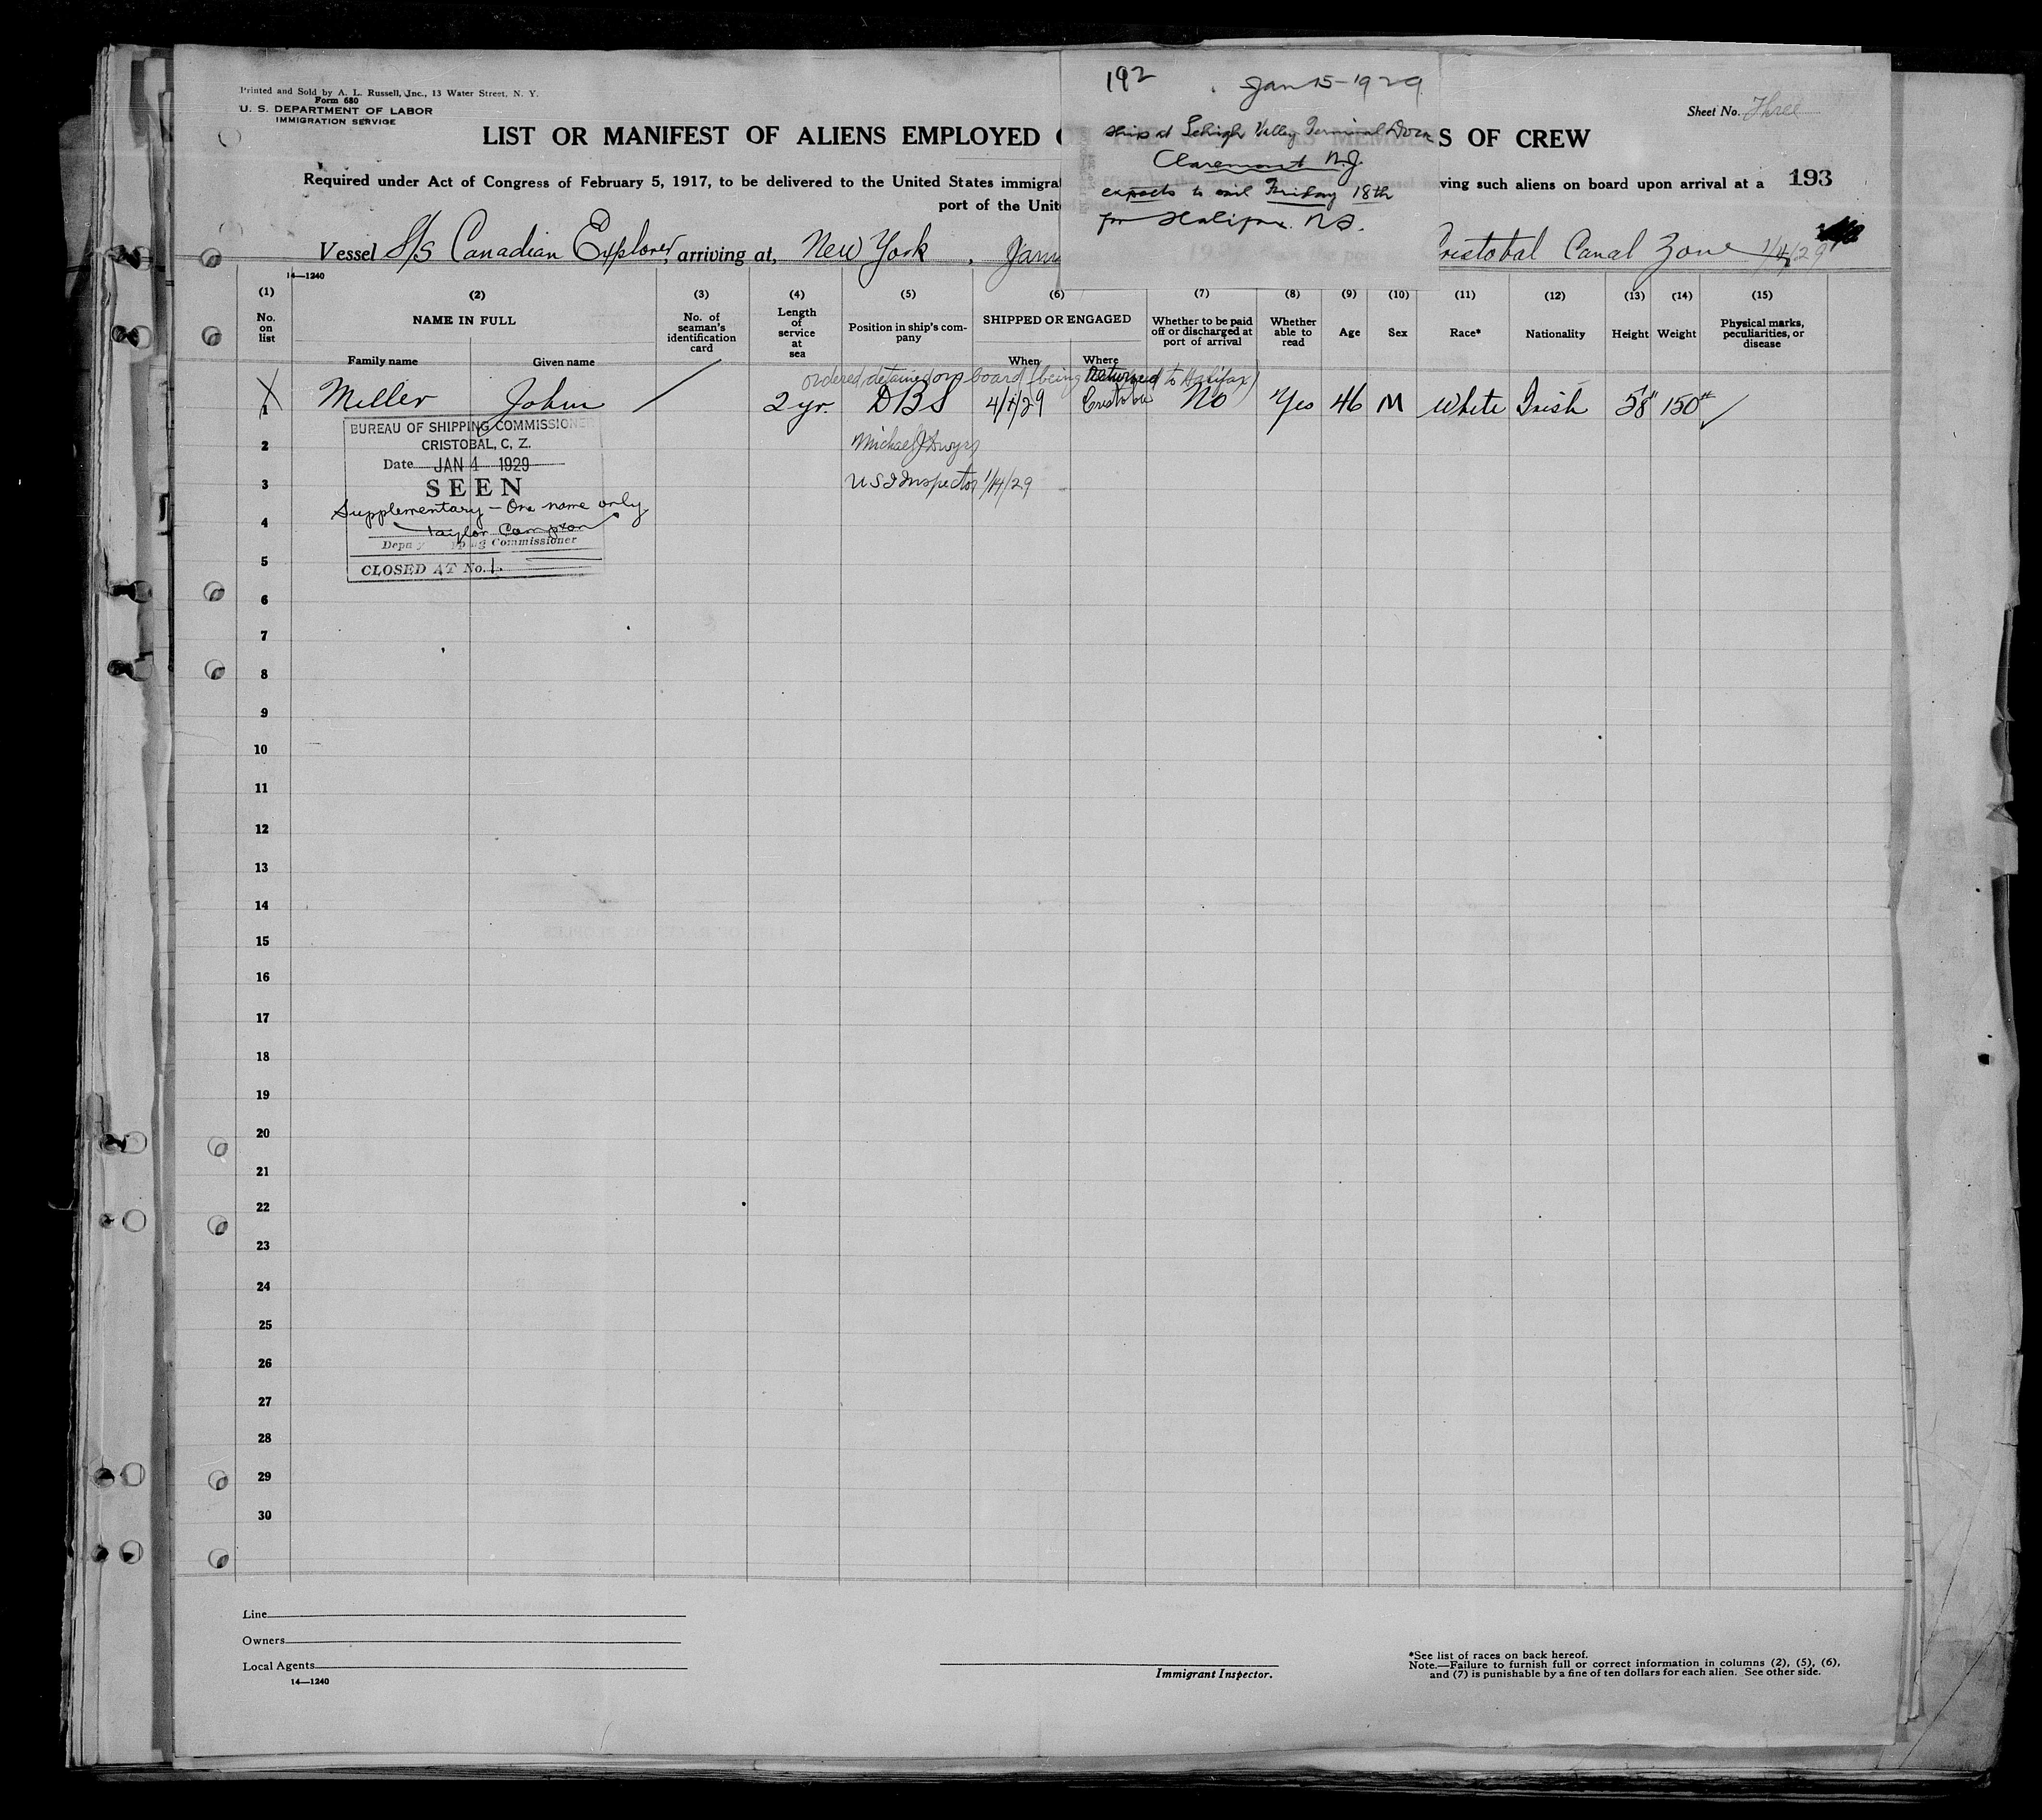 Printed and Sold by A. L. Russell, Inc., 13 Water Street, N. Y.
Form 680
U. S. DEPARTMENT OF LABOR
IMMIGRATION SERVICE
192
Jan 15-1929
Sheet No. Three
LIST OR MANIFEST OF ALIENS EMPLOYED O
S OF CREW
ship at Lehigh Valley Terminal Dock
Claremont N.J.
expects to sail Friday 18th
for Halifax. NS.
Required under Act of Congress of February 5, 1917, to be delivered to the United States immigra
ving such aliens on board upon arrival at a
193
port of the Unit
Vessel S/S Canadian Explorer, arriving at, New York, Janu
ristobal Canal Zone 1/4/29
14—1240
(1) (2) (3) (4) (5) (6) (7) (8) (9) (10) (11) (12) (13) (14) (15)
No. on list
NAME IN FULL
Family name
Given name
No. of seaman's identification card
Length of service at sea
Position in ship's com-pany
SHIPPED OR ENGAGED
When
Where
Whether to be paid off or discharged at port of arrival
Whether able to read
Age
Sex
Race*
Nationality
Height
Weight
Physical marks, peculiarities, or disease
ordered detained on board (being Returned to Halifax)
1 Miller John 2 yr. DBS 4/1/29 Cristobal No Yes 46 M White Irish 5'8" 150#
BUREAU OF SHIPPING COMMISSIONER
CRISTOBAL, C. Z.
Date JAN 4 1929
SEEN
Supplementary - One name only
Taylor Compton
Deputy Shipping Commissioner
CLOSED AT No. 1.
2 Michael J Dwyer
3 US I Inspector 1/14/29
4
5
6
7
8
9
10
11
12
13
14
15
16
17
18
19
20
21
22
23
24
25
26
27
28
29
30
Line
Owners
Local Agents
14—1240
Immigrant Inspector.
*See list of races on back hereof.
Note.—Failure to furnish full or correct information in columns (2), (5), (6),
and (7) is punishable by a fine of ten dollars for each alien. See other side.